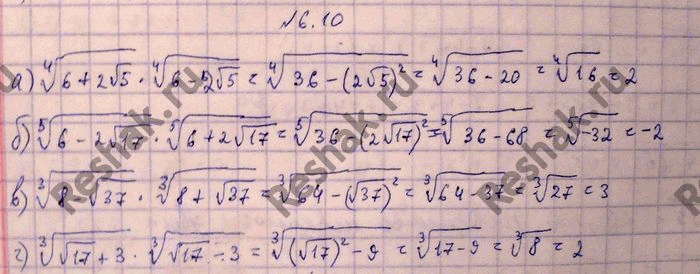 №6.10
а) ⁴√(6+2√5) · ⁴√(6-2√5) = ⁴√(36-(2√5)²) = ⁴√(36-20) = ⁴√16 = 2
б) ⁵√(6-2√17) · ⁵√(6+2√17) = ⁵√(36-(2√17)²) = ⁵√(36-68) = ⁵√-32 = -2
в) ³√(8-√37) · ³√(8+√37) = ³√(64-(√37)²) = ³√(64-37) = ³√27 = 3
г) ³√(√17+3) · ³√(√17-3) = ³√((√17)²-9) = ³√(17-9) = ³√8 = 2
Reshak.ru
Reshak.ru
Reshak.ru